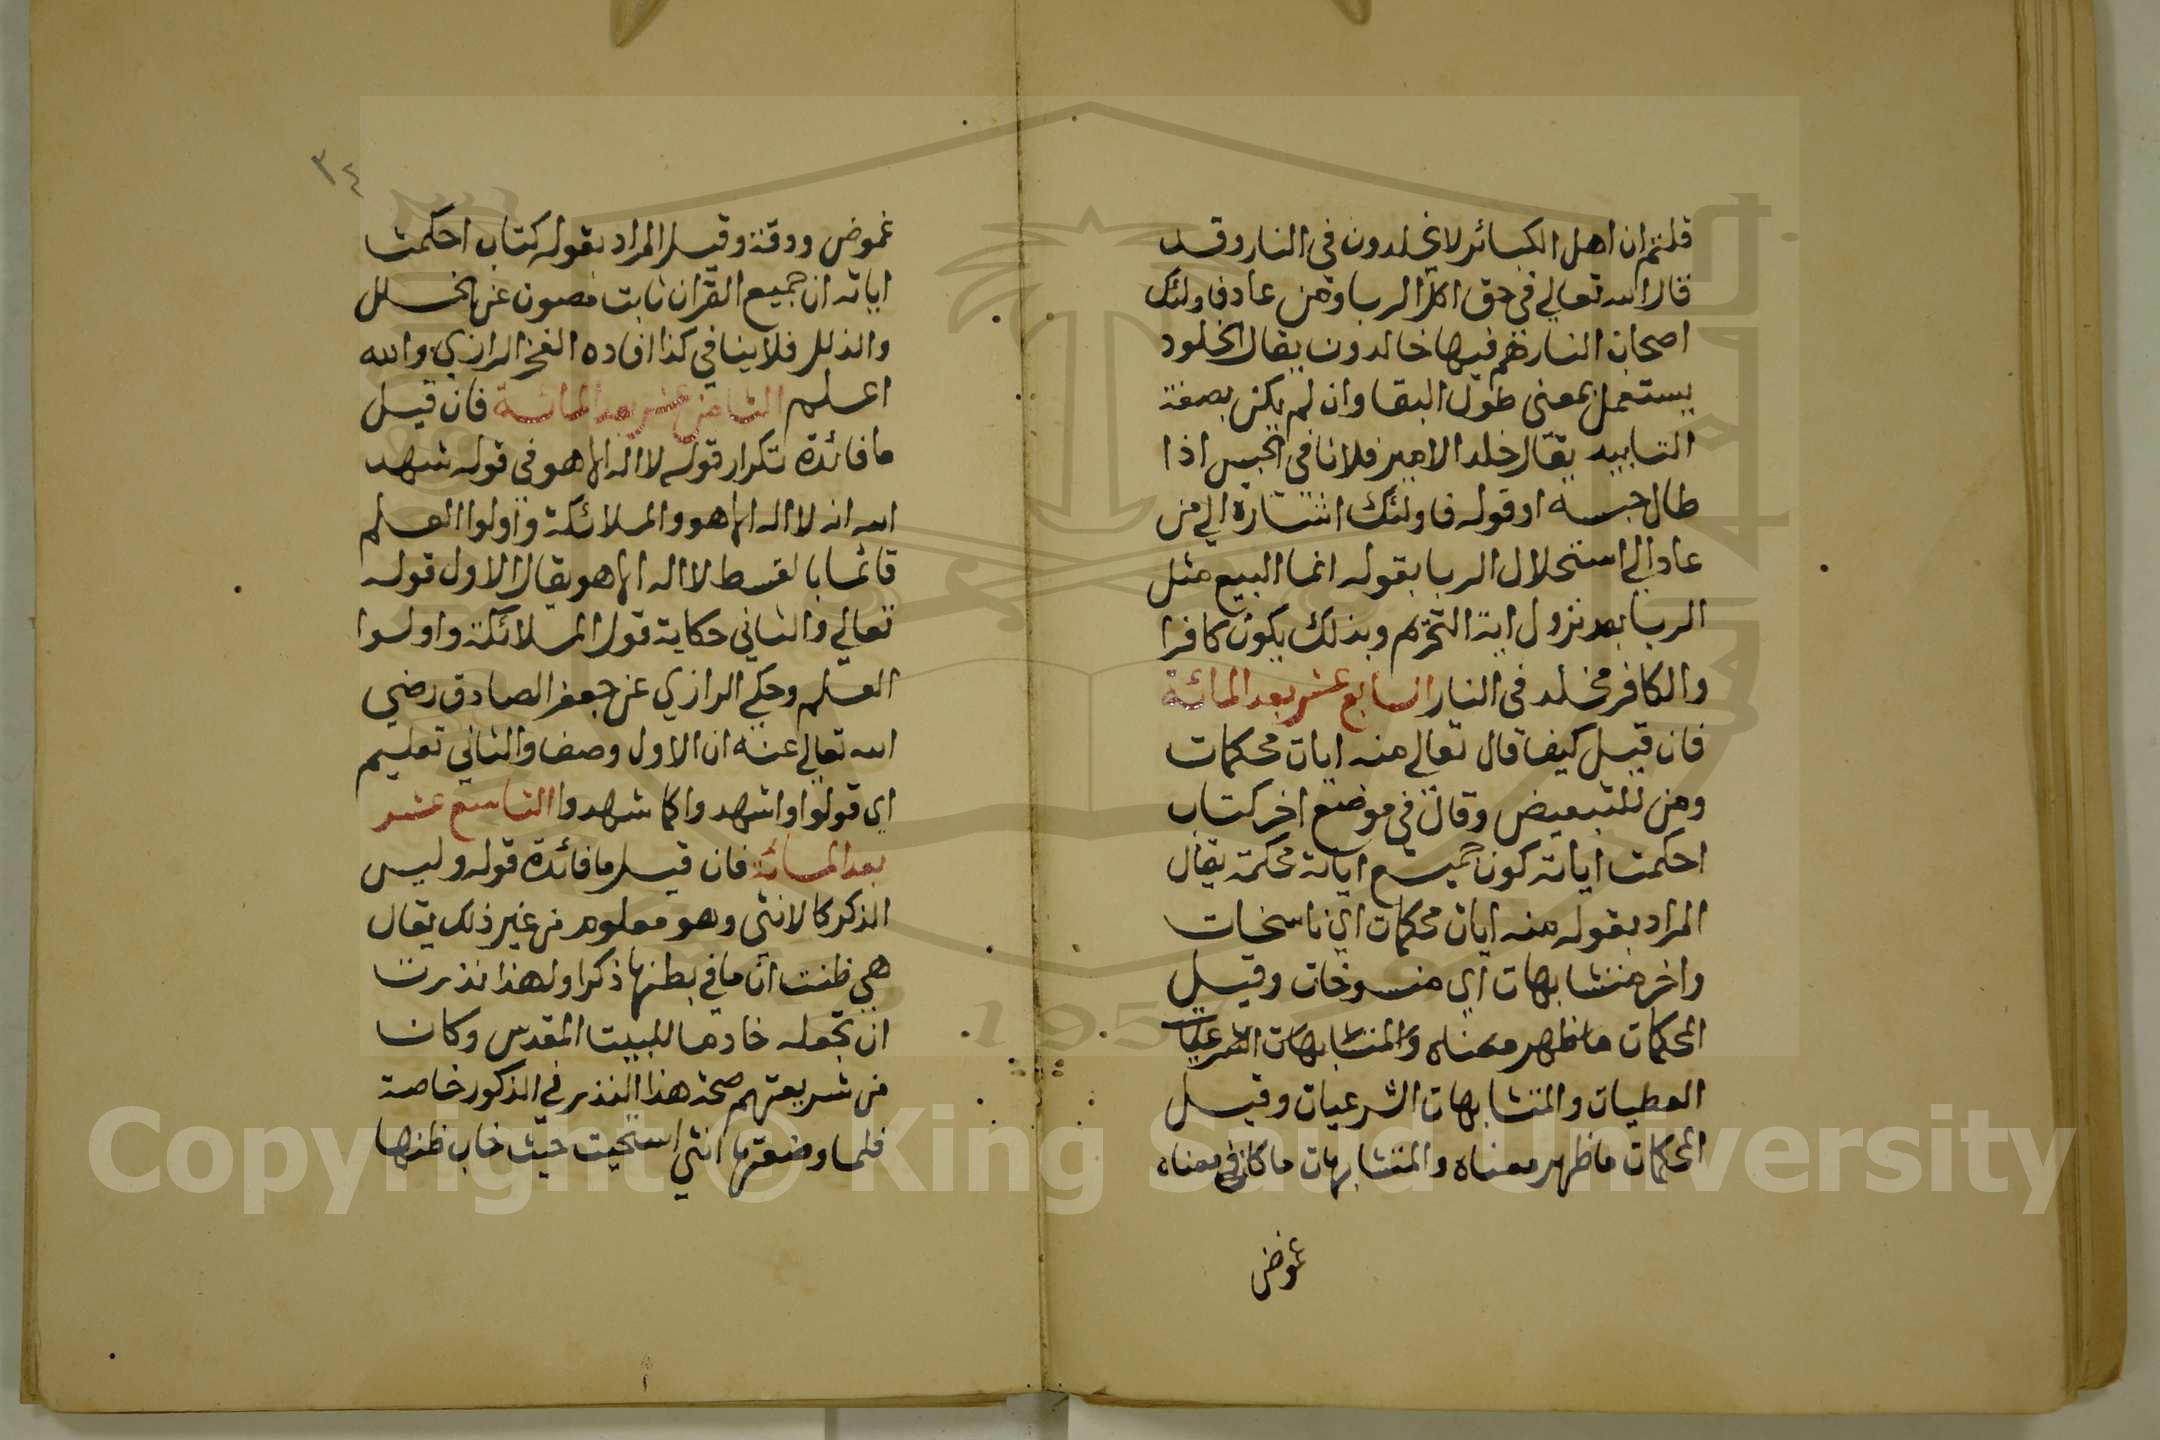 قلتم ان اهل الكبائر لا يخلدون في النار وقد
قال الله تعالي في حق اكل الربا ومن عاد فاولئك
اصحاب النار هم فيها خالدون يقال الخلود
يستعمل بمعنى طول البقا وان لم يكن بصفة
التابيد يقال خلد الامير فلانا في الحبس اذا
طال حبسه او قوله فاولئك اشارة الي من
عاد الي استحلال الربا بقوله انما البيع مثل
الربا بعد نزول اية التحريم وبذلك يكون كافرا
والكافر مخلد في النار السابع عشر بعد المائة
فان قيل كيف قال تعالي منه ايات محكمات
ومن للتبعيض وقال في موضع اخر كتاب
احكمت اياته كون جميع اياته محكمة يقال
المراد بقوله منه ايات محكمات اي ناسخات
واخر متشابهات اي منسوخات وقيل
المحكمات ما ظهر معناه والمتشابهات الشرعيات
والمتشابهات الشرعيات وقيل
المحكمات ما ظهر معناه والمتشابهات ما كان في معناه
غموض
٣٤
غموض ودقة وقيل المراد بقوله كتاب احكمت
اياته ان جميع القران ثابت مصون عن الخلل
والذلل فلا ينافي كذا افاده الفخر الرازي والله
اعلم الثامن عشر بعد المائة فان قيل
ما فائدة تكرار قوله لا اله الا هو في قوله شهد
الله انه لا اله الا هو والملائكة واولوا العلم
قائما بالقسط لا اله الا هو يقال الاول قوله
تعالي والثاني حكاية قول الملائكة واولوا
العلم وحكي الرازي عن جعفر الصادق رضي
الله تعالي عنه ان الاول وصف والثاني تعليم
اي قولوا واشهدوا كما شهدوا التاسع عشر
بعد المائة فان قيل ما فائدة قوله وليس
الذكر كالانثي وهو معلوم من غير ذلك يقال
هي ظنت ان ما في بطنها ذكرا ولهذا نذرت
ان تجعله خادما للبيت المقدس وكان
من شريعتهم صحة هذا النذر في الذكور خاصة
فلما وضعتها انثي استحيت حيث خاب ظنها
Copyright © King Saud University
1957